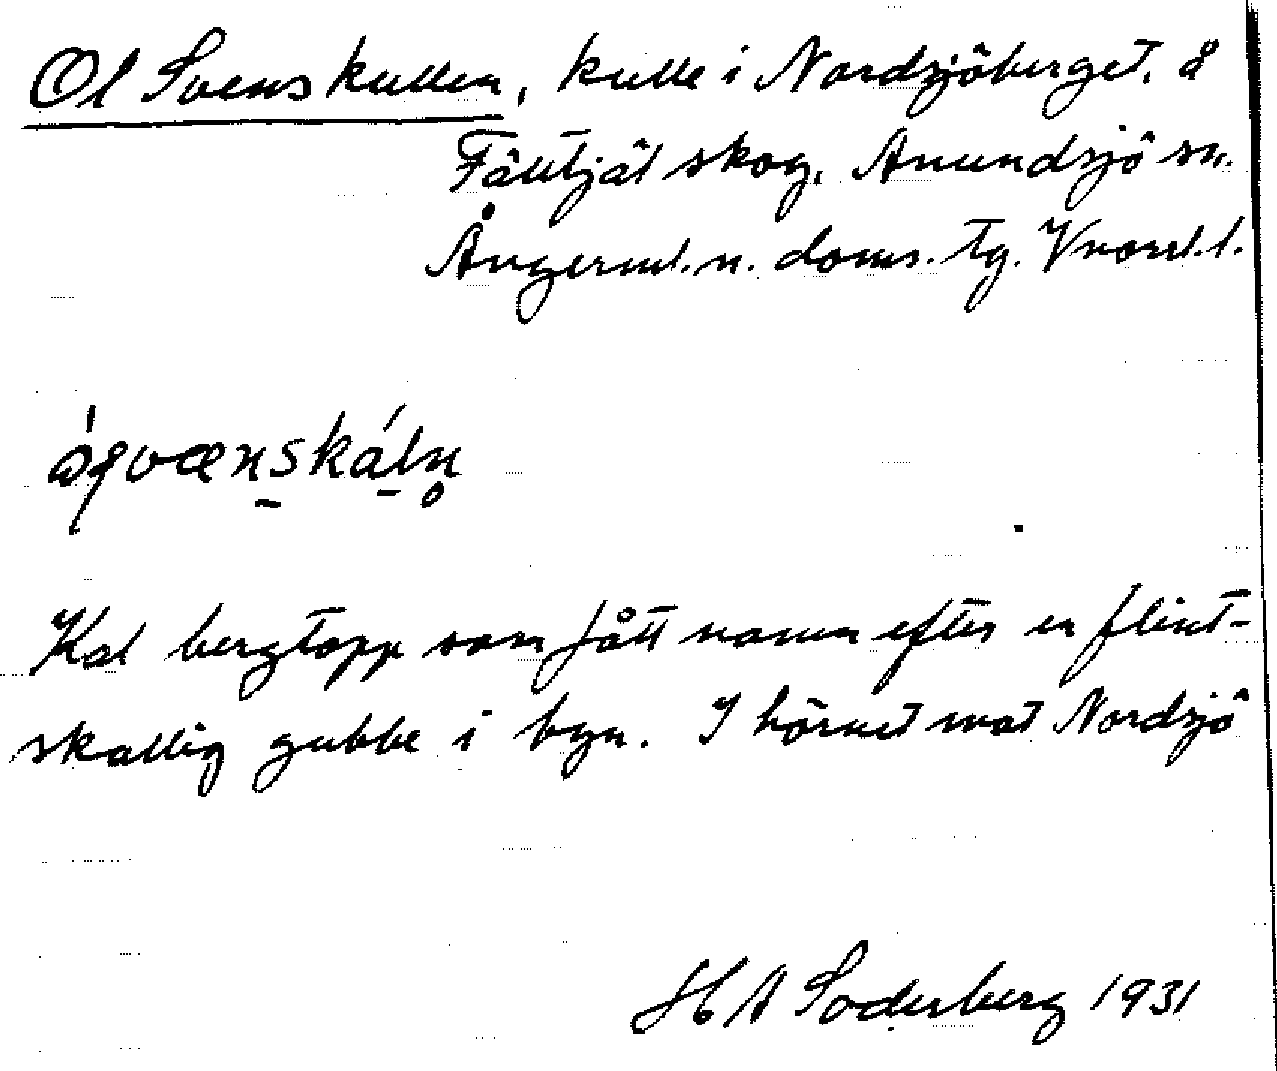 Ol Svenskullen, kulle i Nordsjöberget, å
Fälltjäl skog, Anundsjö sn.
Ångerml. n. doms. tg. Vnorrl. l.
Kal bergtopp som fått namn efter en flint-
skallig gubbe i byn. I hörnet mot Nordsjö
H A Söderberg 1931